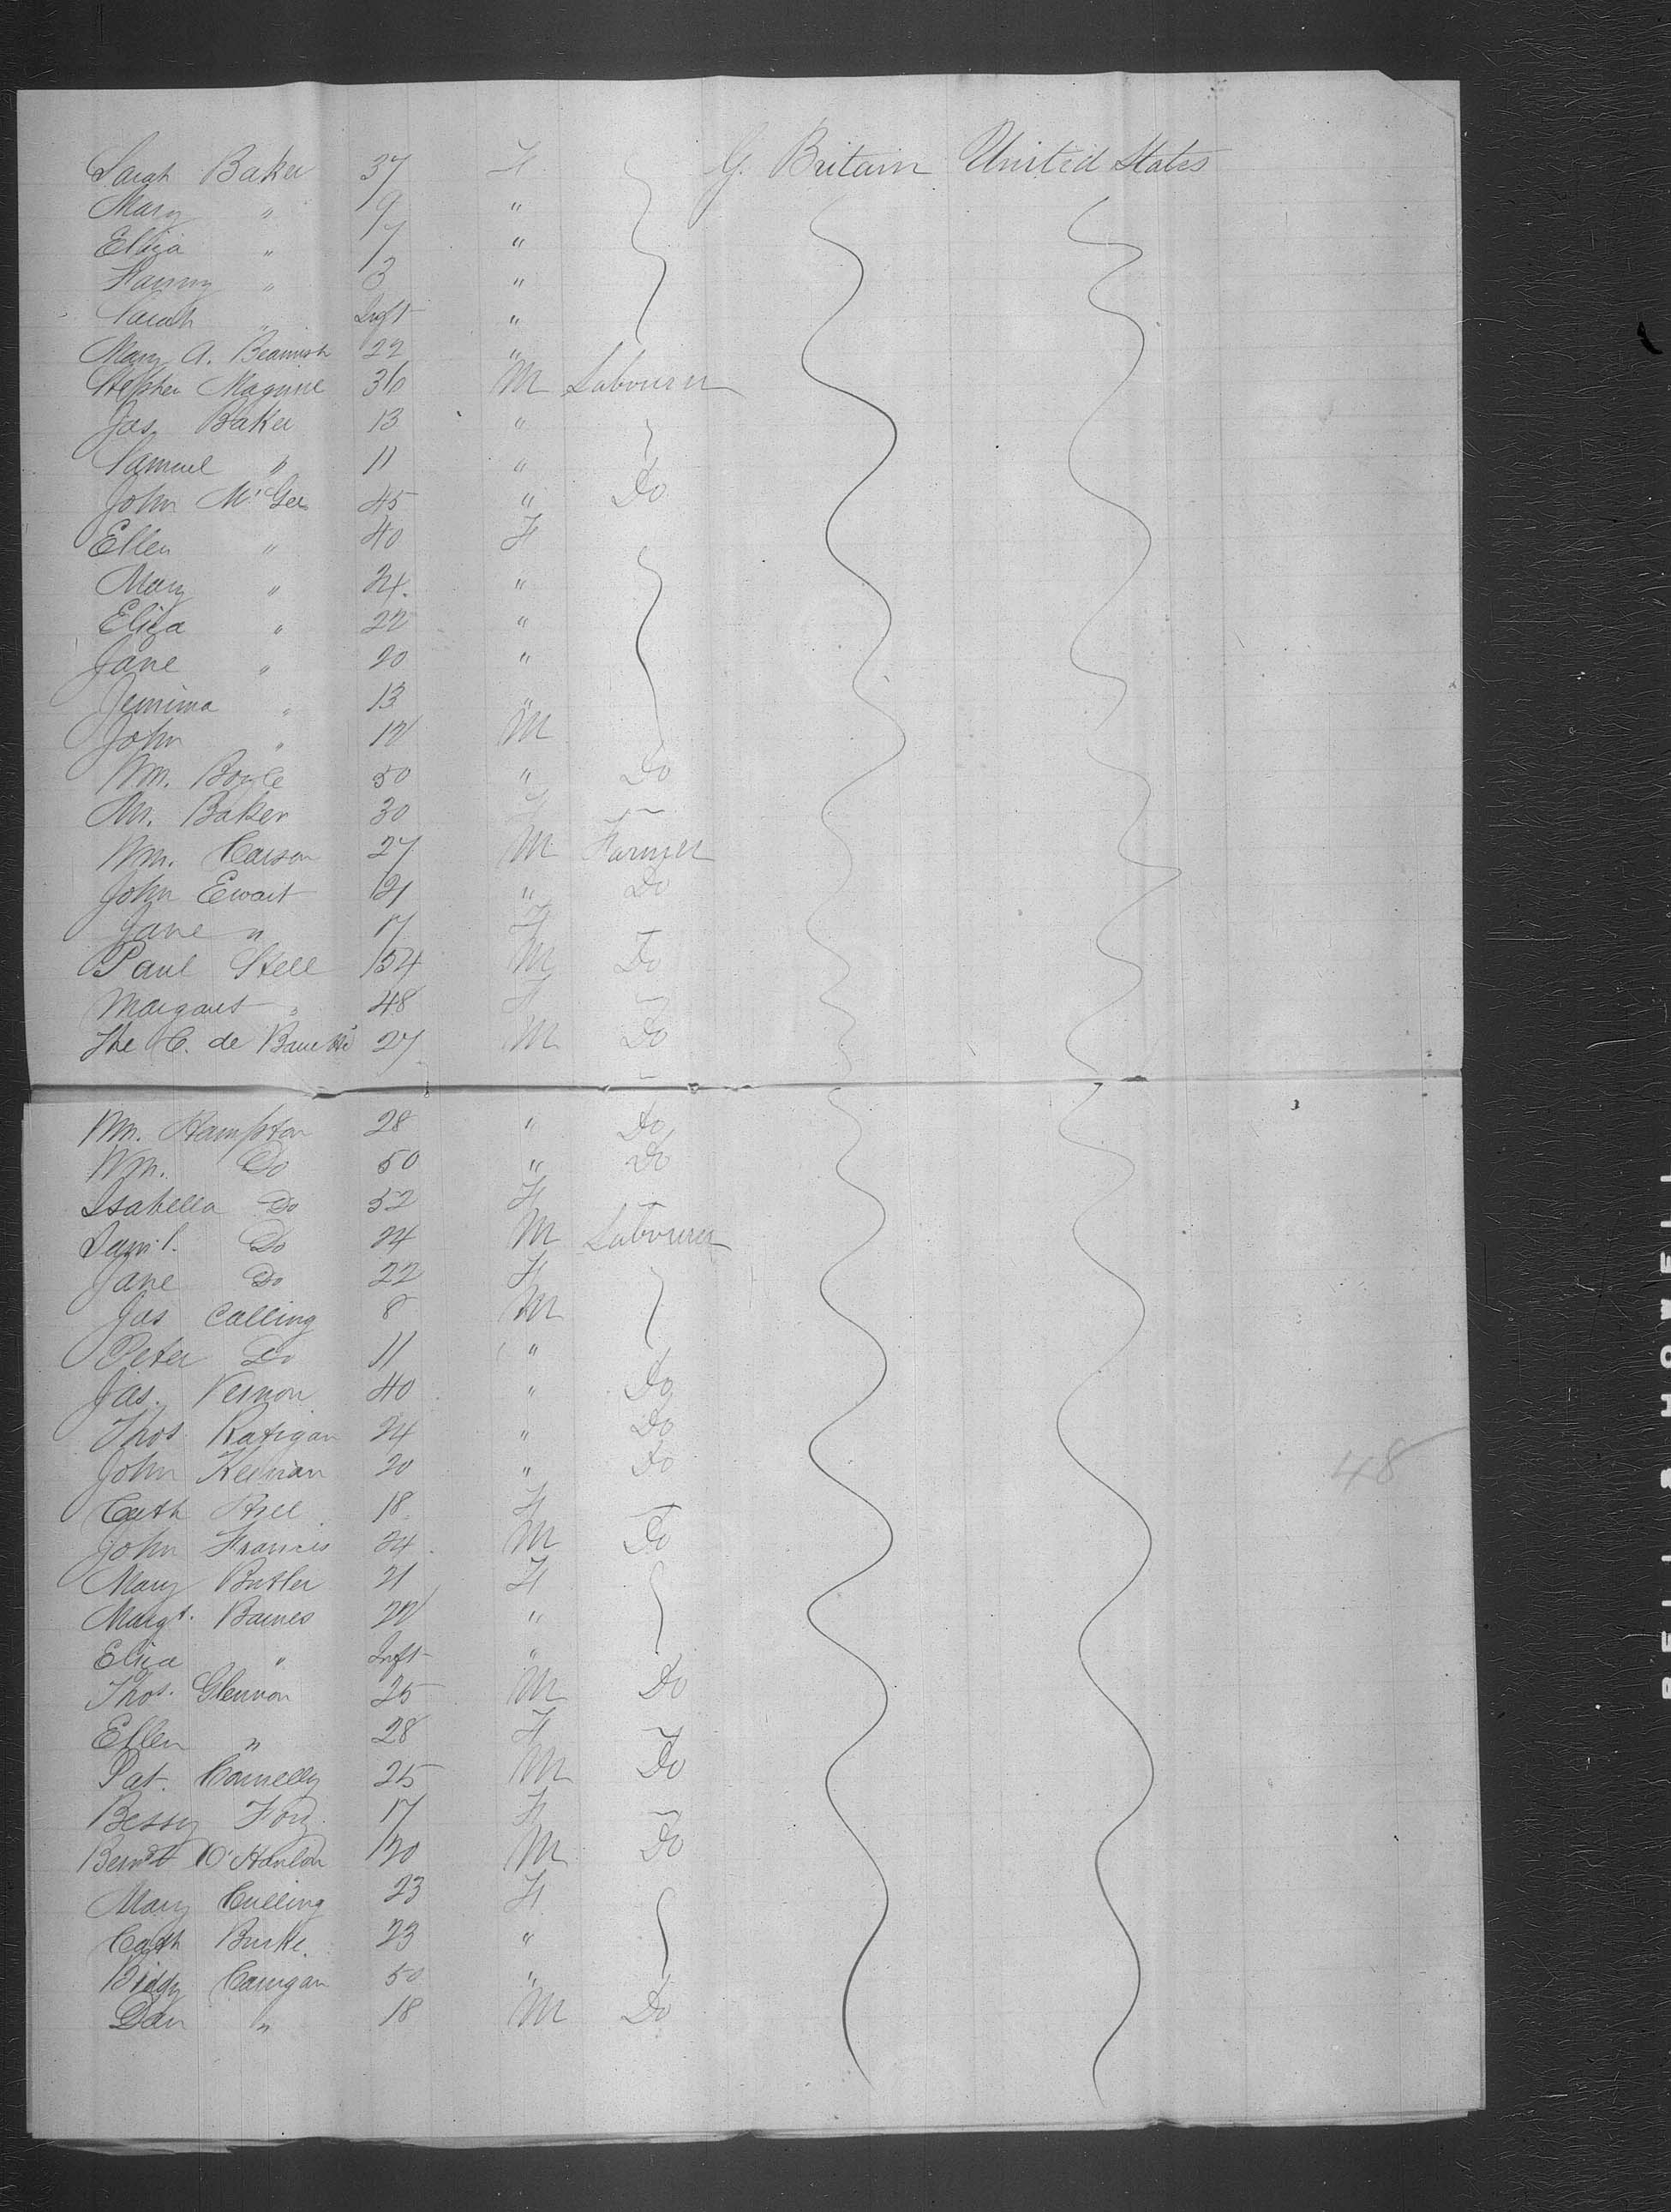 Sarah Baker 37 F G. Britain United States
Mary " 9 "
Eliza " 7 "
Fanny " 3 "
Sarah " Inft "
Mary A. Beamish 22 "
Stephen Maguire 36 M Labourer
Jas. Baker 13 "
Samuel " 11 "
John McGee 45 " Do
Ellen " 40 F
Mary " 24. "
Eliza " 22 "
Jane " 20 "
Jemima " 13 "
John " 12 M
Wm. Boyle 50 " Do
An. Baker 30 F
Wm. Carson 27 M Farmer
John Ewart 21 " Do
Jane " 17 F
Paul Stell 54 M Do
Margaret " 48 F
The C. de 27 M Do
Wm. Hampton 28 " Do
Wm. Do 50 " Do
Isabella Do 52 F
Saml. Do 24 M Labourer
Jane Do 22 F
Jas Calling 8 M
Peter Do 11 "
Jas. Vernon 40 " Do
Thos Ratigan 24 " Do
John 20 " Do
48
Cath 18 F
John Francis 24 M Do
Mary Butler 21 F
Margt. Barnes 22 "
Eliza " Inft "
Thos. Glennon 25 M Do
Ellen " 28 F
Pat. Connelly 25 M Do
Bessy Foy 17 F
Bernd O'Hanlon 20 M Do
Mary Culling 23 F
Cath Burke. 23 "
Biddy Carrigan 50 "
Dan " 18 M Do
BELL & HOWELL